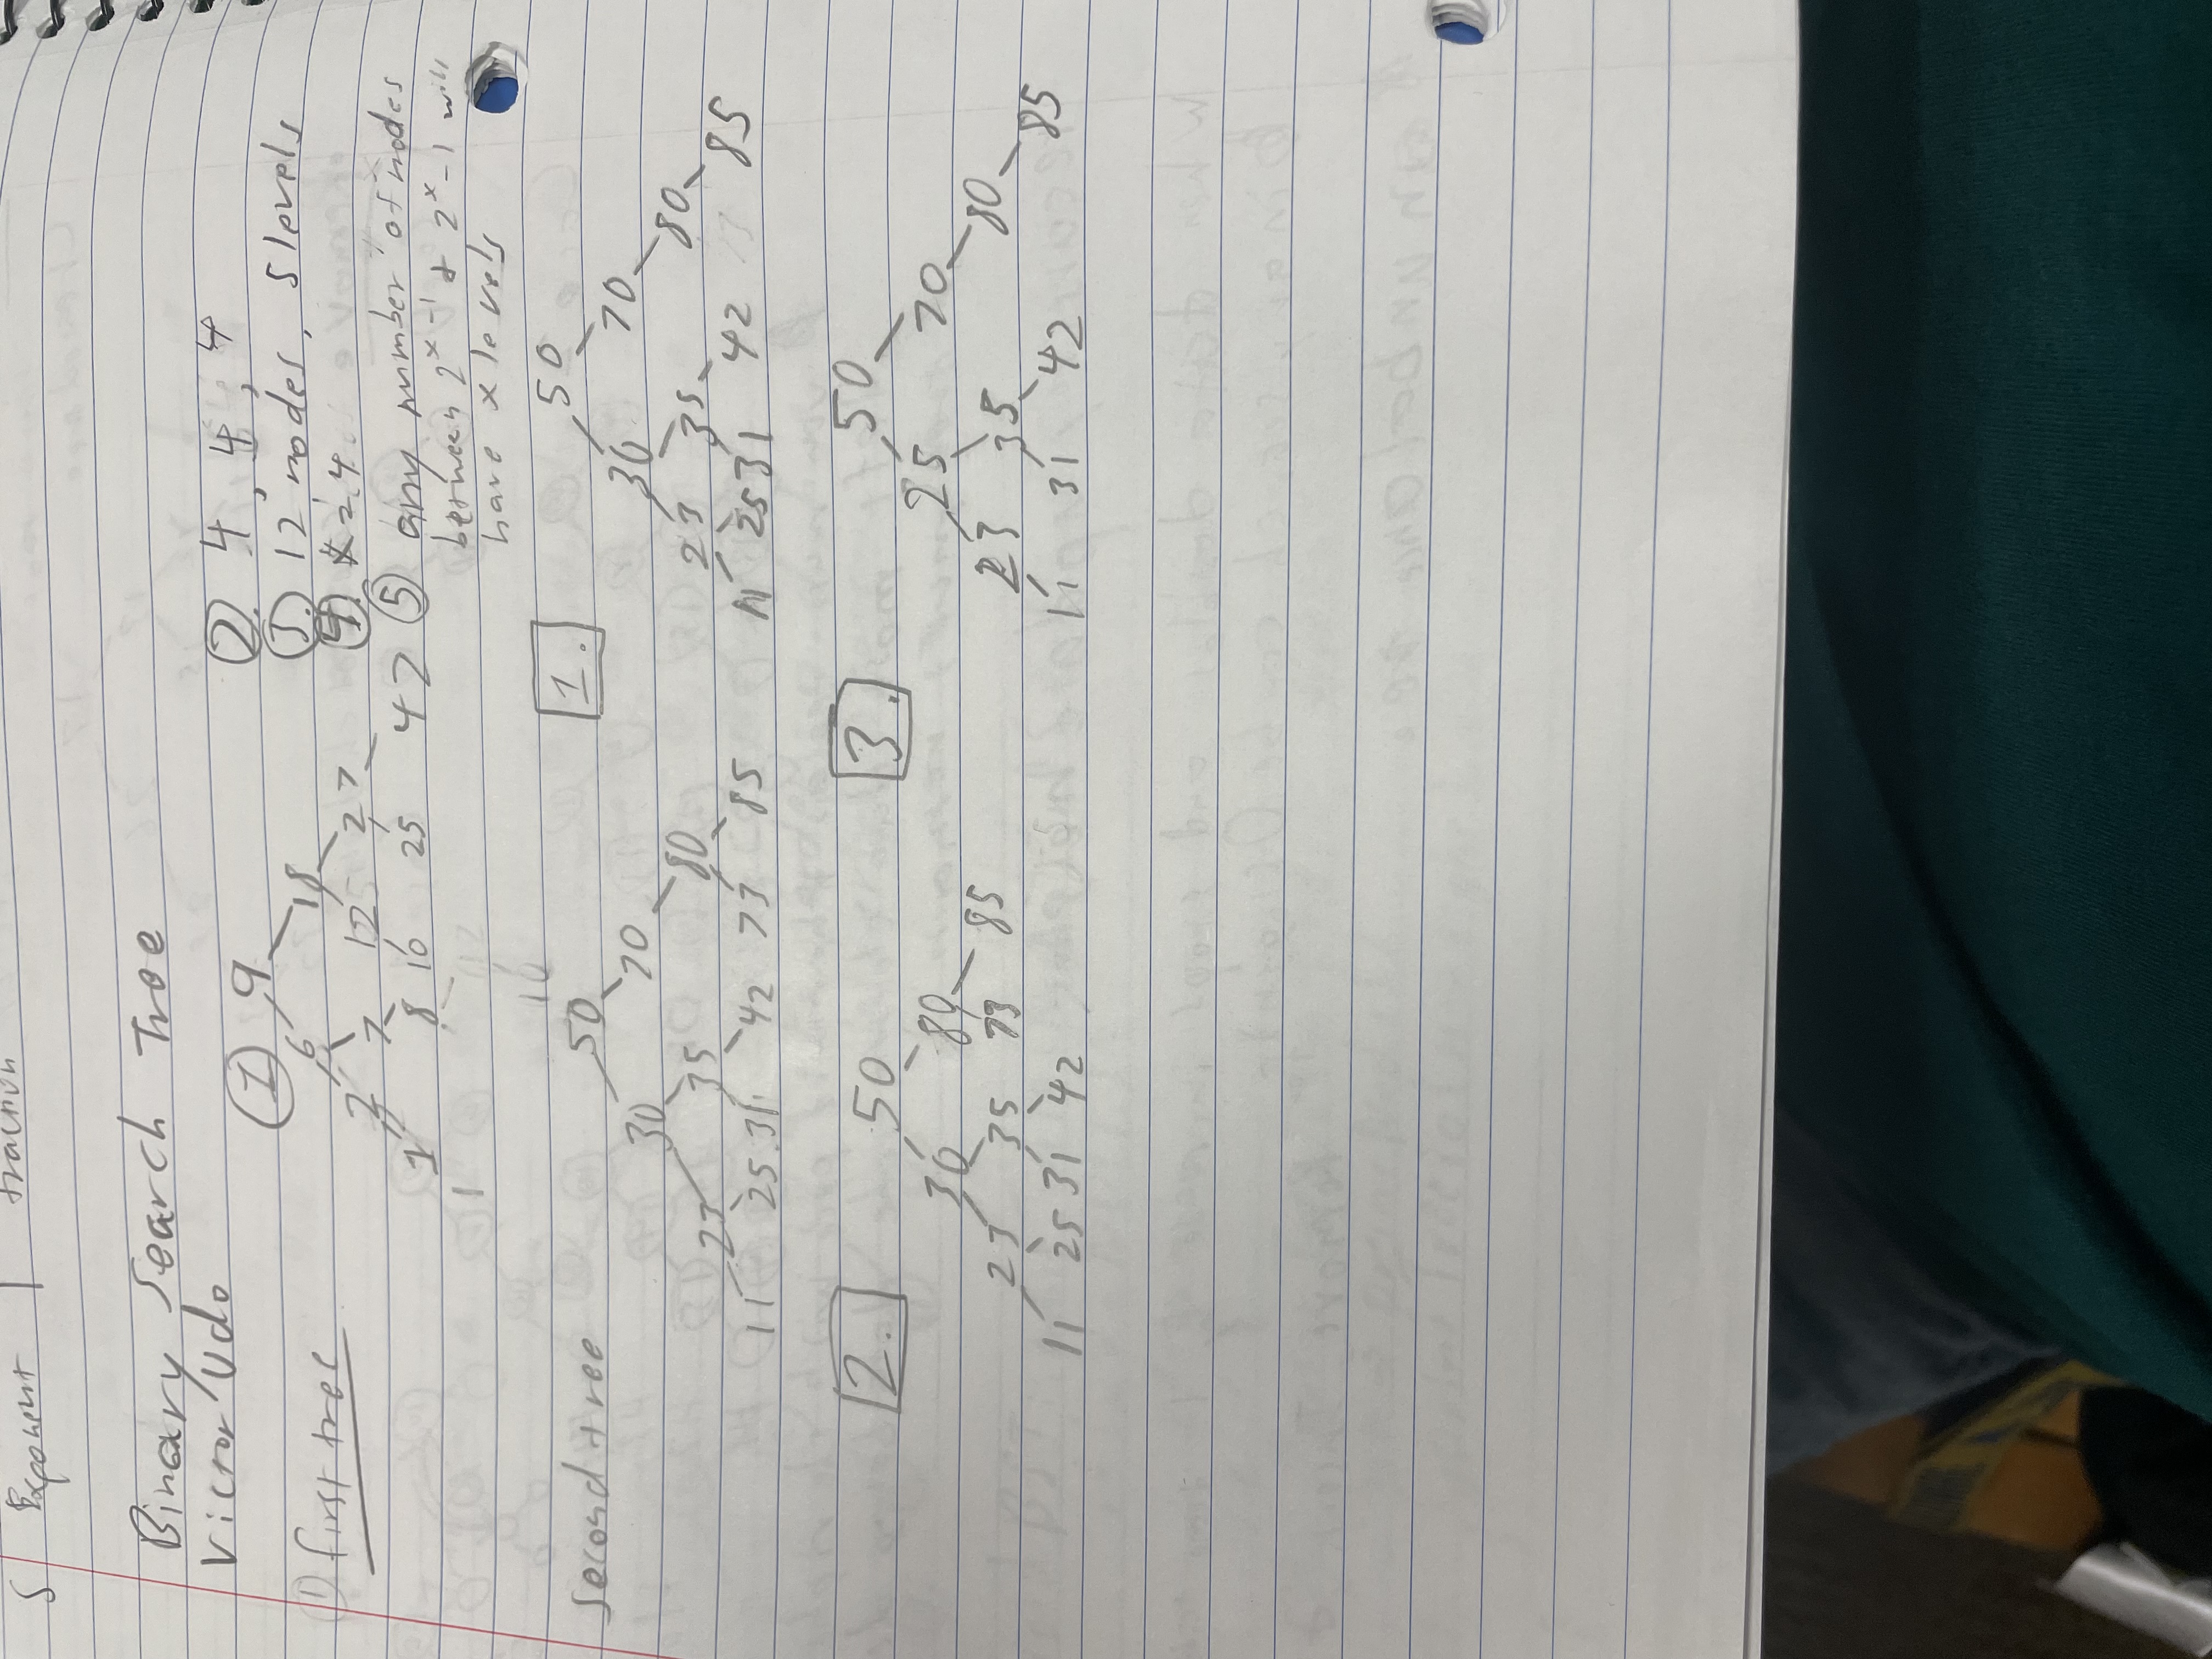 S Exponent fraction
Binary Search Tree
Victor Udo
① first tree
① 9
6 18
2 7 12 27
1 8 10 25 42
1
10
②. 4, 4, 4
③. 12 nodes, 5 levels
④. x=4
⑤ any number of nodes
between 2^x-1 & 2^x-1 will
have x levels
Second tree
50
30 70
23 35 80
11 25 31 42 73 85
1.
50
30 70
23 35 80
11 25 31 42 85
2.
50
30 80
23 35 73 85
11 25 31 42
3.
50
25 70
23 35 80
11 31 42 85